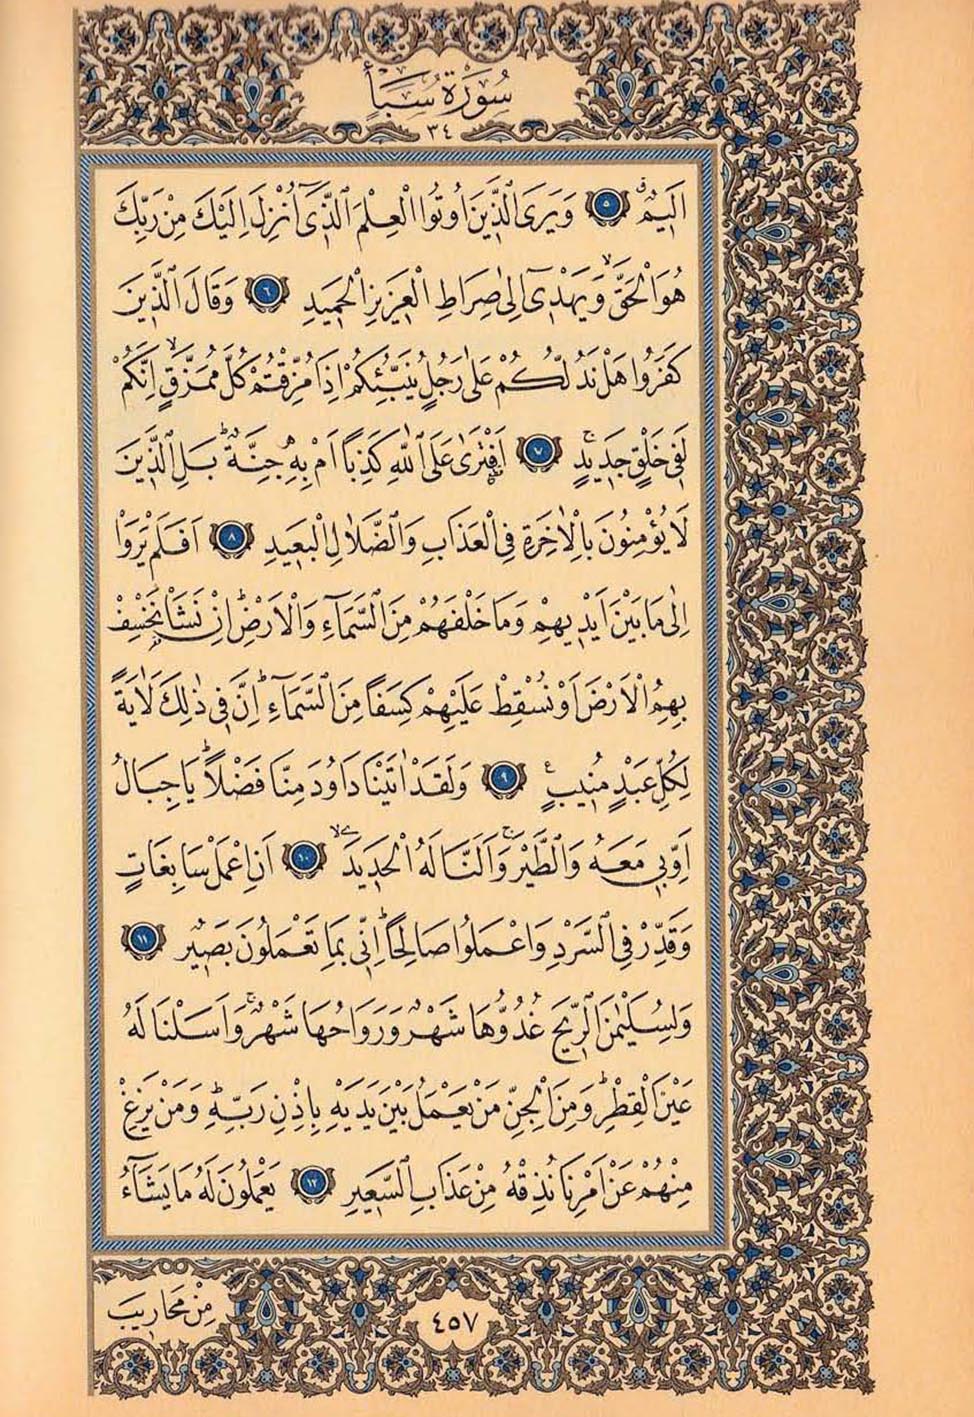 سُورَةُ سَبَأٍ
٣٤
اَلِيمٌ ٥ وَيَرَى الَّذِينَ اُوتُوا الْعِلْمَ الَّذِٓى اُنْزِلَ اِلَيْكَ مِنْ رَبِّكَ
هُوَ الْحَقَّ وَيَهْدِٓى اِلٰى صِرَاطِ الْعَزِيزِ الْحَمِيدِ ٦ وَقَالَ الَّذِينَ
كَفَرُوا هَلْ نَدُلُّكُمْ عَلٰى رَجُلٍ يُنَبِّئُكُمْ اِذَا مُزِّقْتُمْ كُلَّ مُمَزَّقٍ اِنَّكُمْ
لَفِى خَلْقٍ جَدِيدٍ ٧ اَفْتَرٰى عَلَى اللّٰهِ كَذِبًا اَمْ بِهِ جِنَّةٌ بَلِ الَّذِينَ
لَا يُؤْمِنُونَ بِالْاٰخِرَةِ فِى الْعَذَابِ وَالضَّلَالِ الْبَعِيدِ ٨ اَفَلَمْ يَرَوْا
اِلٰى مَا بَيْنَ اَيْدِيهِمْ وَمَا خَلْفَهُمْ مِنَ السَّمَٓاءِ وَالْاَرْضِ اِنْ نَشَأْ نَخْسِفْ
بِهِمُ الْاَرْضَ اَوْ نُسْقِطْ عَلَيْهِمْ كِسَفًا مِنَ السَّمَٓاءِ اِنَّ فِى ذٰلِكَ لَاٰيَةً
لِكُلِّ عَبْدٍ مُنِيبٍ ٩ وَلَقَدْ اٰتَيْنَا دَاوُدَ مِنَّا فَضْلًا يَا جِبَالُ
اَوِّبِى مَعَهُ وَالطَّيْرَ وَاَلَنَّا لَهُ الْحَدِيدَ ١٠ اَنِ اعْمَلْ سَابِغَاتٍ
وَقَدِّرْ فِى السَّرْدِ وَاعْمَلُوا صَالِحًا اِنِّى بِمَا تَعْمَلُونَ بَصِيرٌ ١١
وَلِسُلَيْمٰنَ الرِّيحَ غُدُوُّهَا شَهْرٌ وَرَوَاحُهَا شَهْرٌ وَاَسَلْنَا لَهُ
عَيْنَ الْقِطْرِ وَمِنَ الْجِنِّ مَنْ يَعْمَلُ بَيْنَ يَدَيْهِ بِاِذْنِ رَبِّهِ وَمَنْ يَزِغْ
مِنْهُمْ عَنْ اَمْرِنَا نُذِقْهُ مِنْ عَذَابِ السَّعِيرِ ١٢ يَعْمَلُونَ لَهُ مَا يَشَٓاءُ
مِنْ مَحَارِيبَ
٤٥٧